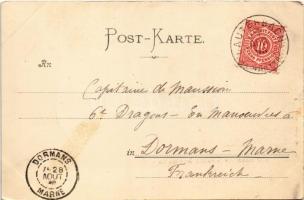 POST-KARTE.
An
Capitaine de Maussion
6e Dragons - En Manoeuvres a
in Dormans - Marne
Frankreich -
10
DORMANS
28
AOUT
MARNE